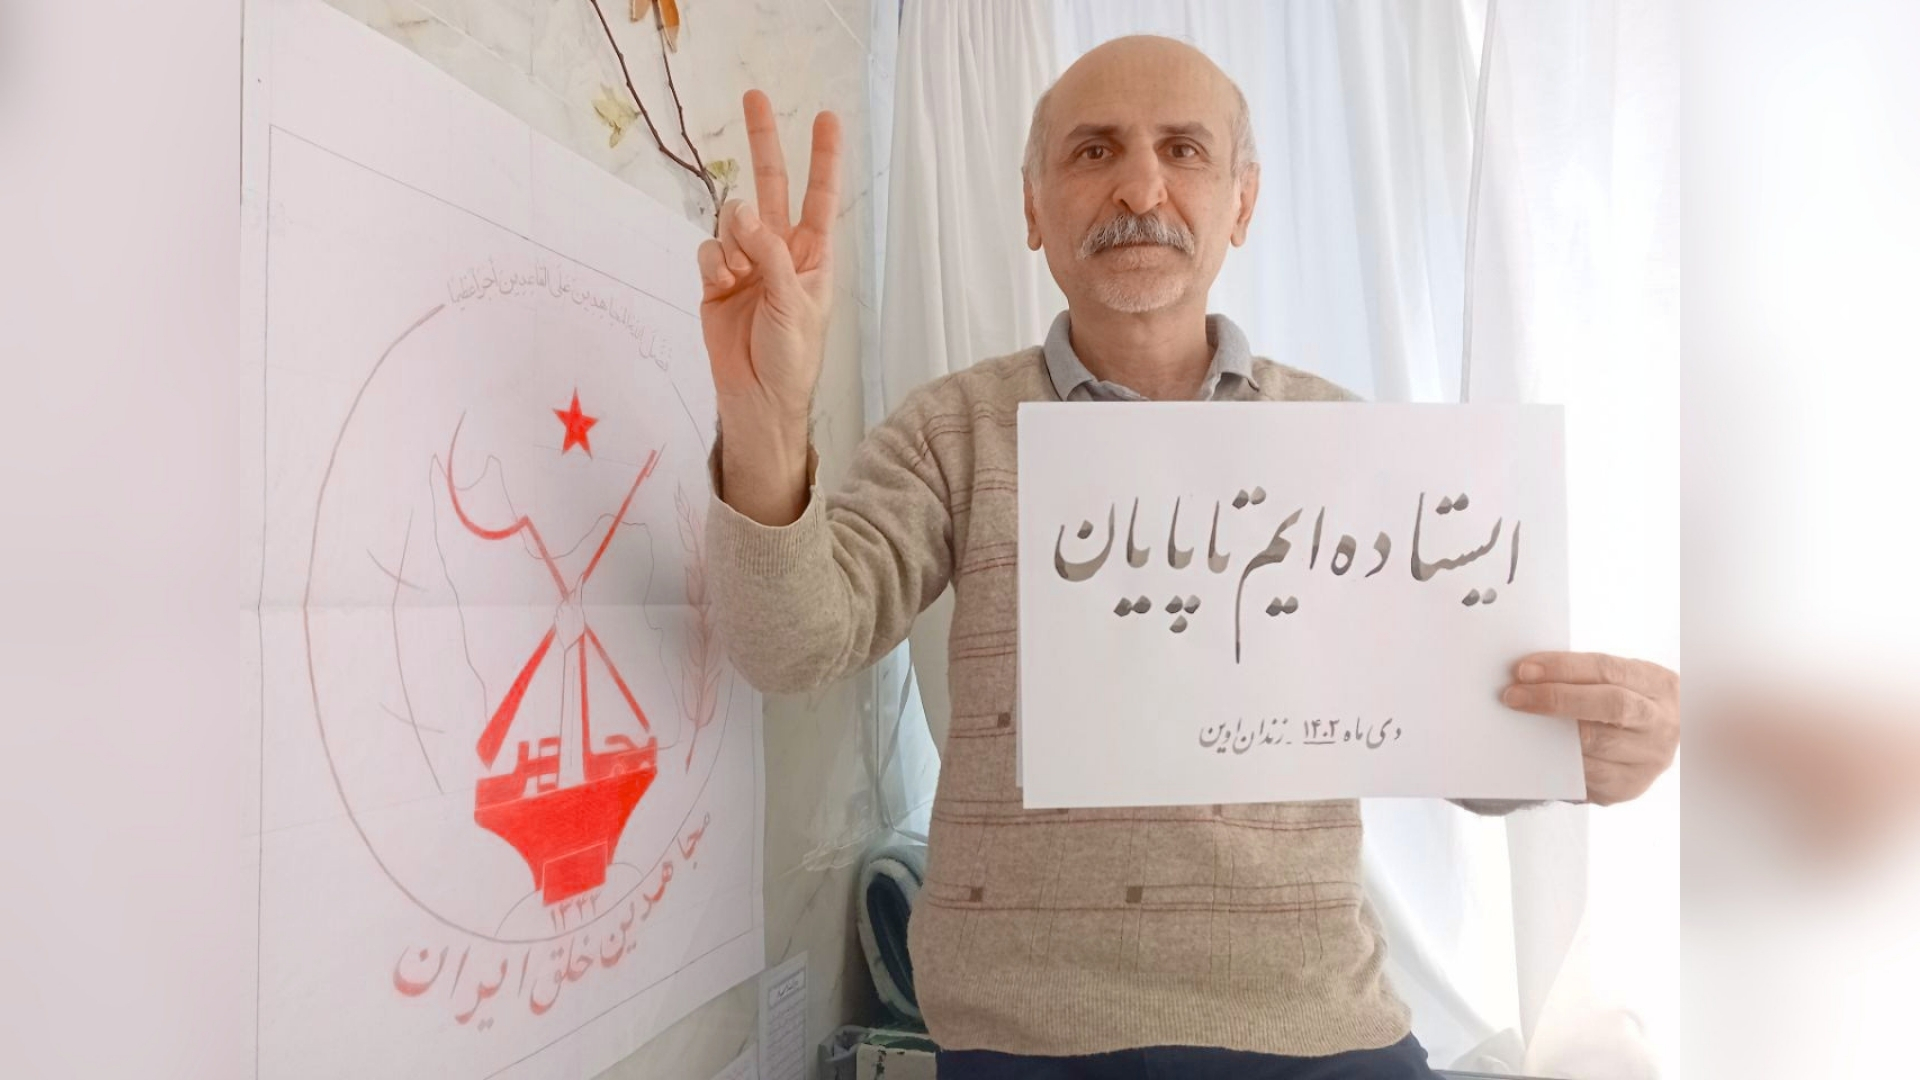 فَضَّلَ اللهُ المُجاهِدینَ عَلَی القاعِدینَ أجراً عَظیماً
۱۳۴۴
مجاهدین خلق ایران
ایستاده ایم تا پایان
دی ماه ۱۴۰۲ - زندان اوین